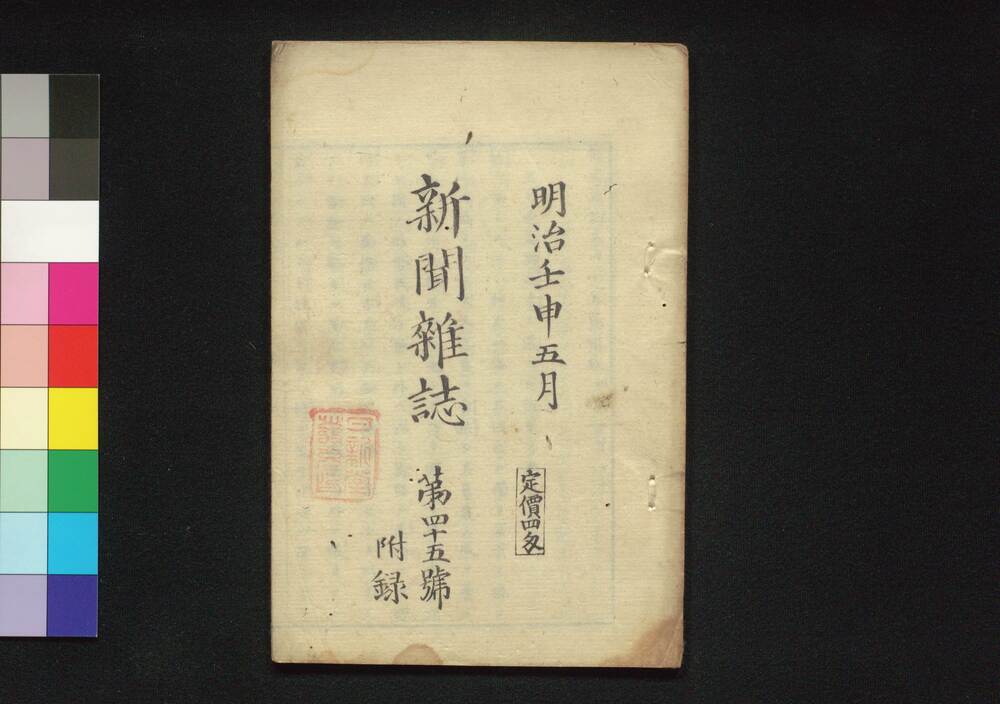 明治壬申五月
定價四匁
新聞雜誌
第四十五號
附録